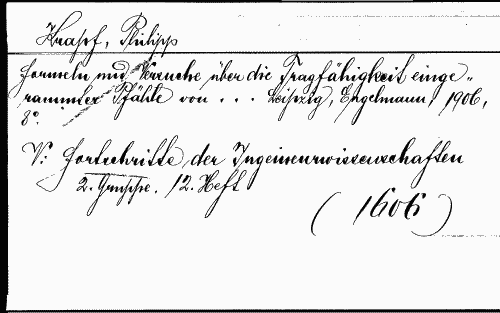 Krapf, Philipp
Formeln und Versuche über die Tragfähigkeit einge„
rammter Pfähle von . . . Leipzig, Engelmann, 1906,
8°.
V: Fortschritte der Ingenieurwissenschaften
2. Gruppe. 12. Heft
(1606)